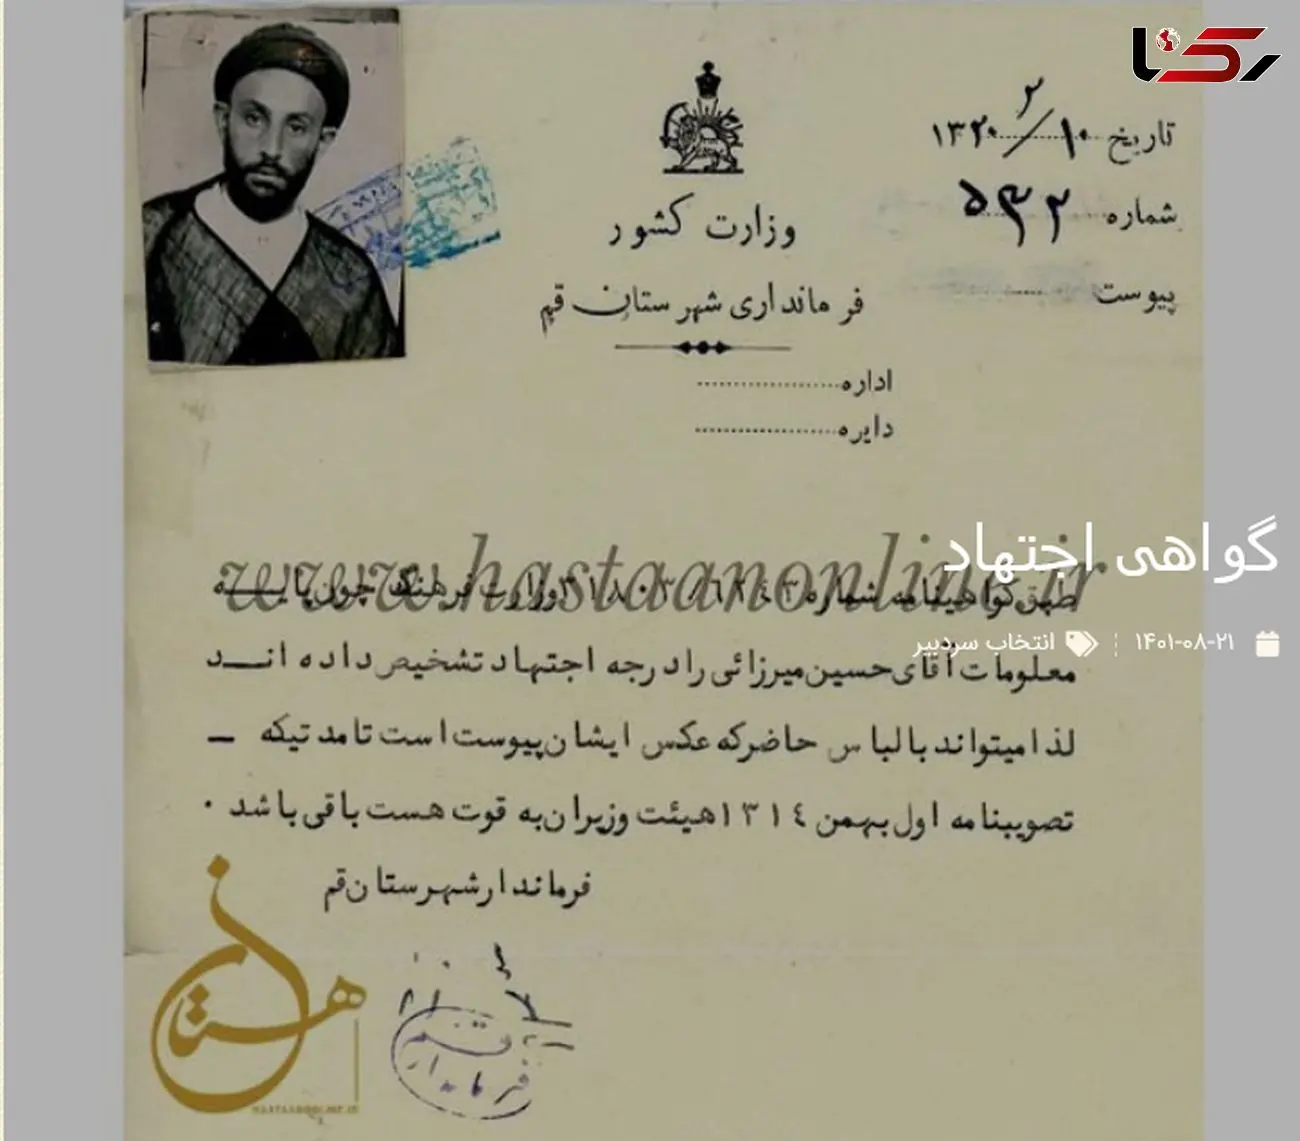 رکنا
تاریخ ۱۰/۲/۱۳۲۰
شماره ۵۳۲
پیوست
وزارت کشور
فرمانداری شهرستان قم
اداره
دایره
گواهی اجتهاد
۱۴۰۱-۰۸-۲۱ انتخاب سردبیر
www.hastaanonline.ir
طبق گواهینامه شماره وزارت فرهنگ چون پایـــه
معلومات آقای حسین میرزائی را درجه اجتهاد تشخیص داده انـد
لذا میتواند با لباس حاضر که عکس ایشان پیوست است تا مدتیکه ـ
تصویبنامه اول بهمن ۱۳۱٤ هیئت وزیران به قوت هست باقی باشد ۰
فرماندار شهرستان قم
هستان
HASTAANONLINE.IR
فرماندار قم